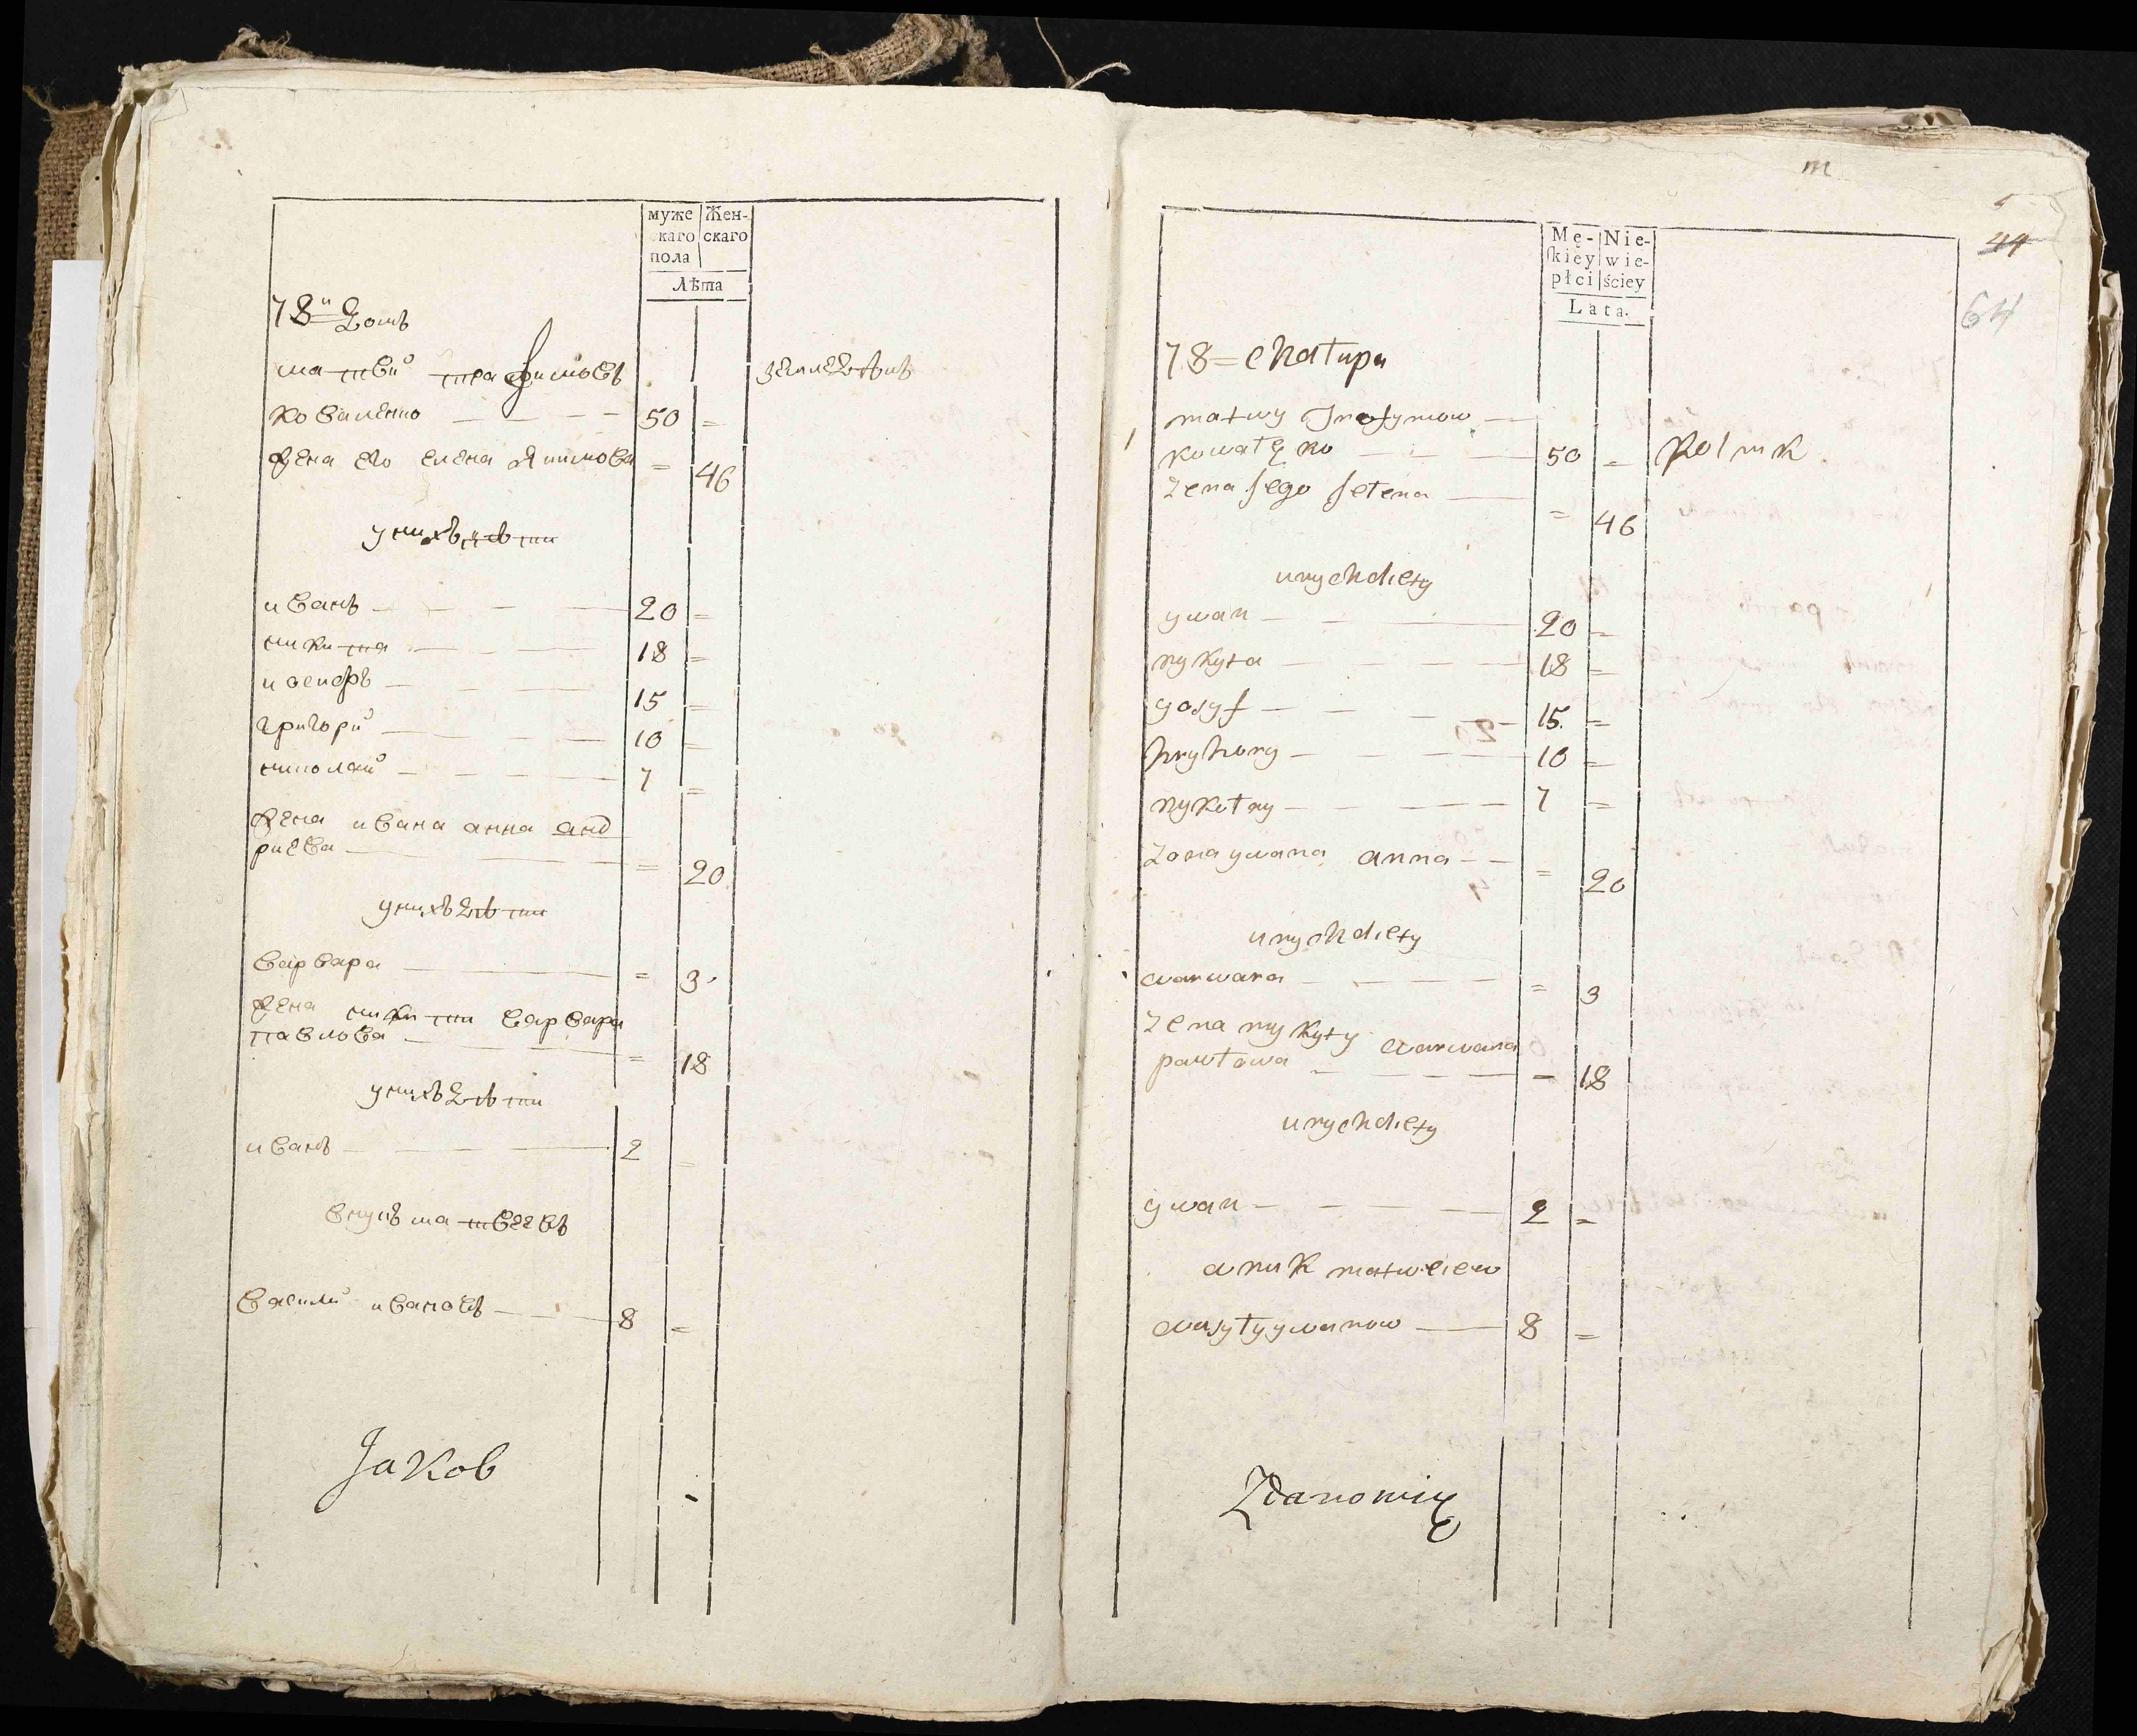 муже Жен-
скаго скаго
пола
Лѣта
78й домъ
матвий трафимовъ земледѣлъ
коваленко 50 =
жена его елена якимова = 46
у нихъ дѣти
иванъ 20 =
никита 18 =
иосифъ 15 =
григори 10 =
николай 7 =
жена ивана анна анд
риева = 20
у нихъ дѣти
варвара = 3
жена никити варвара
павлова = 18
у нихъ дѣти
иванъ 2 =
внукъ матвеевъ
васили ивановъ 8 =
Jakob
m
44
64
Mę- Nie-
skiey wie-
płci ściey
Lata.
78 = chałupa
matwy Trofymow
kowałęko 50 = Rolnik
żena jego jełena = 46
unych diety
ywan 20 =
nykyta 18 =
yosyf 15 =
hryhory 10 =
nykołay 7 =
żona ywana anna = 20
unych diety
warwara = 3
żena nykyty warwara
pawłowa = 18
unych diety
ywan 2 =
wnuk matweiew
wasyły ywanow 8 =
Zdanowicz